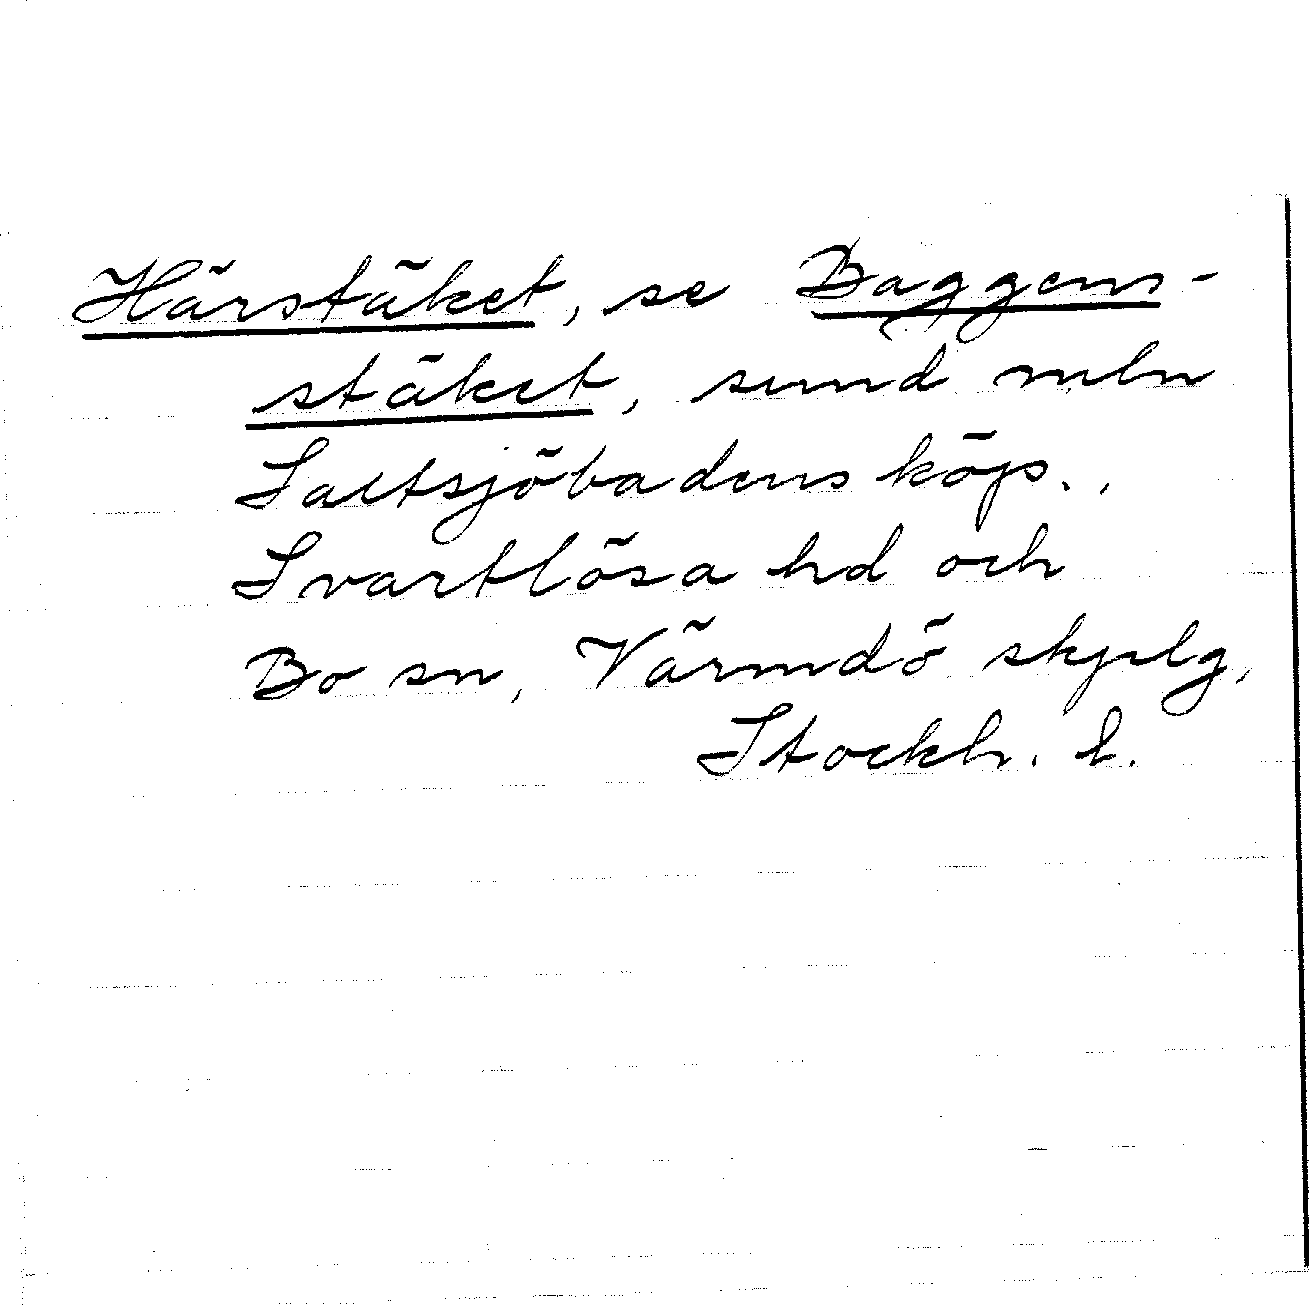 Härstäket, se Baggens-
stäket, sund mln
Saltsjöbadens köps.,
Svartlösa hd och
Bo sn, Värmdö skjplg,
Stockh. l.